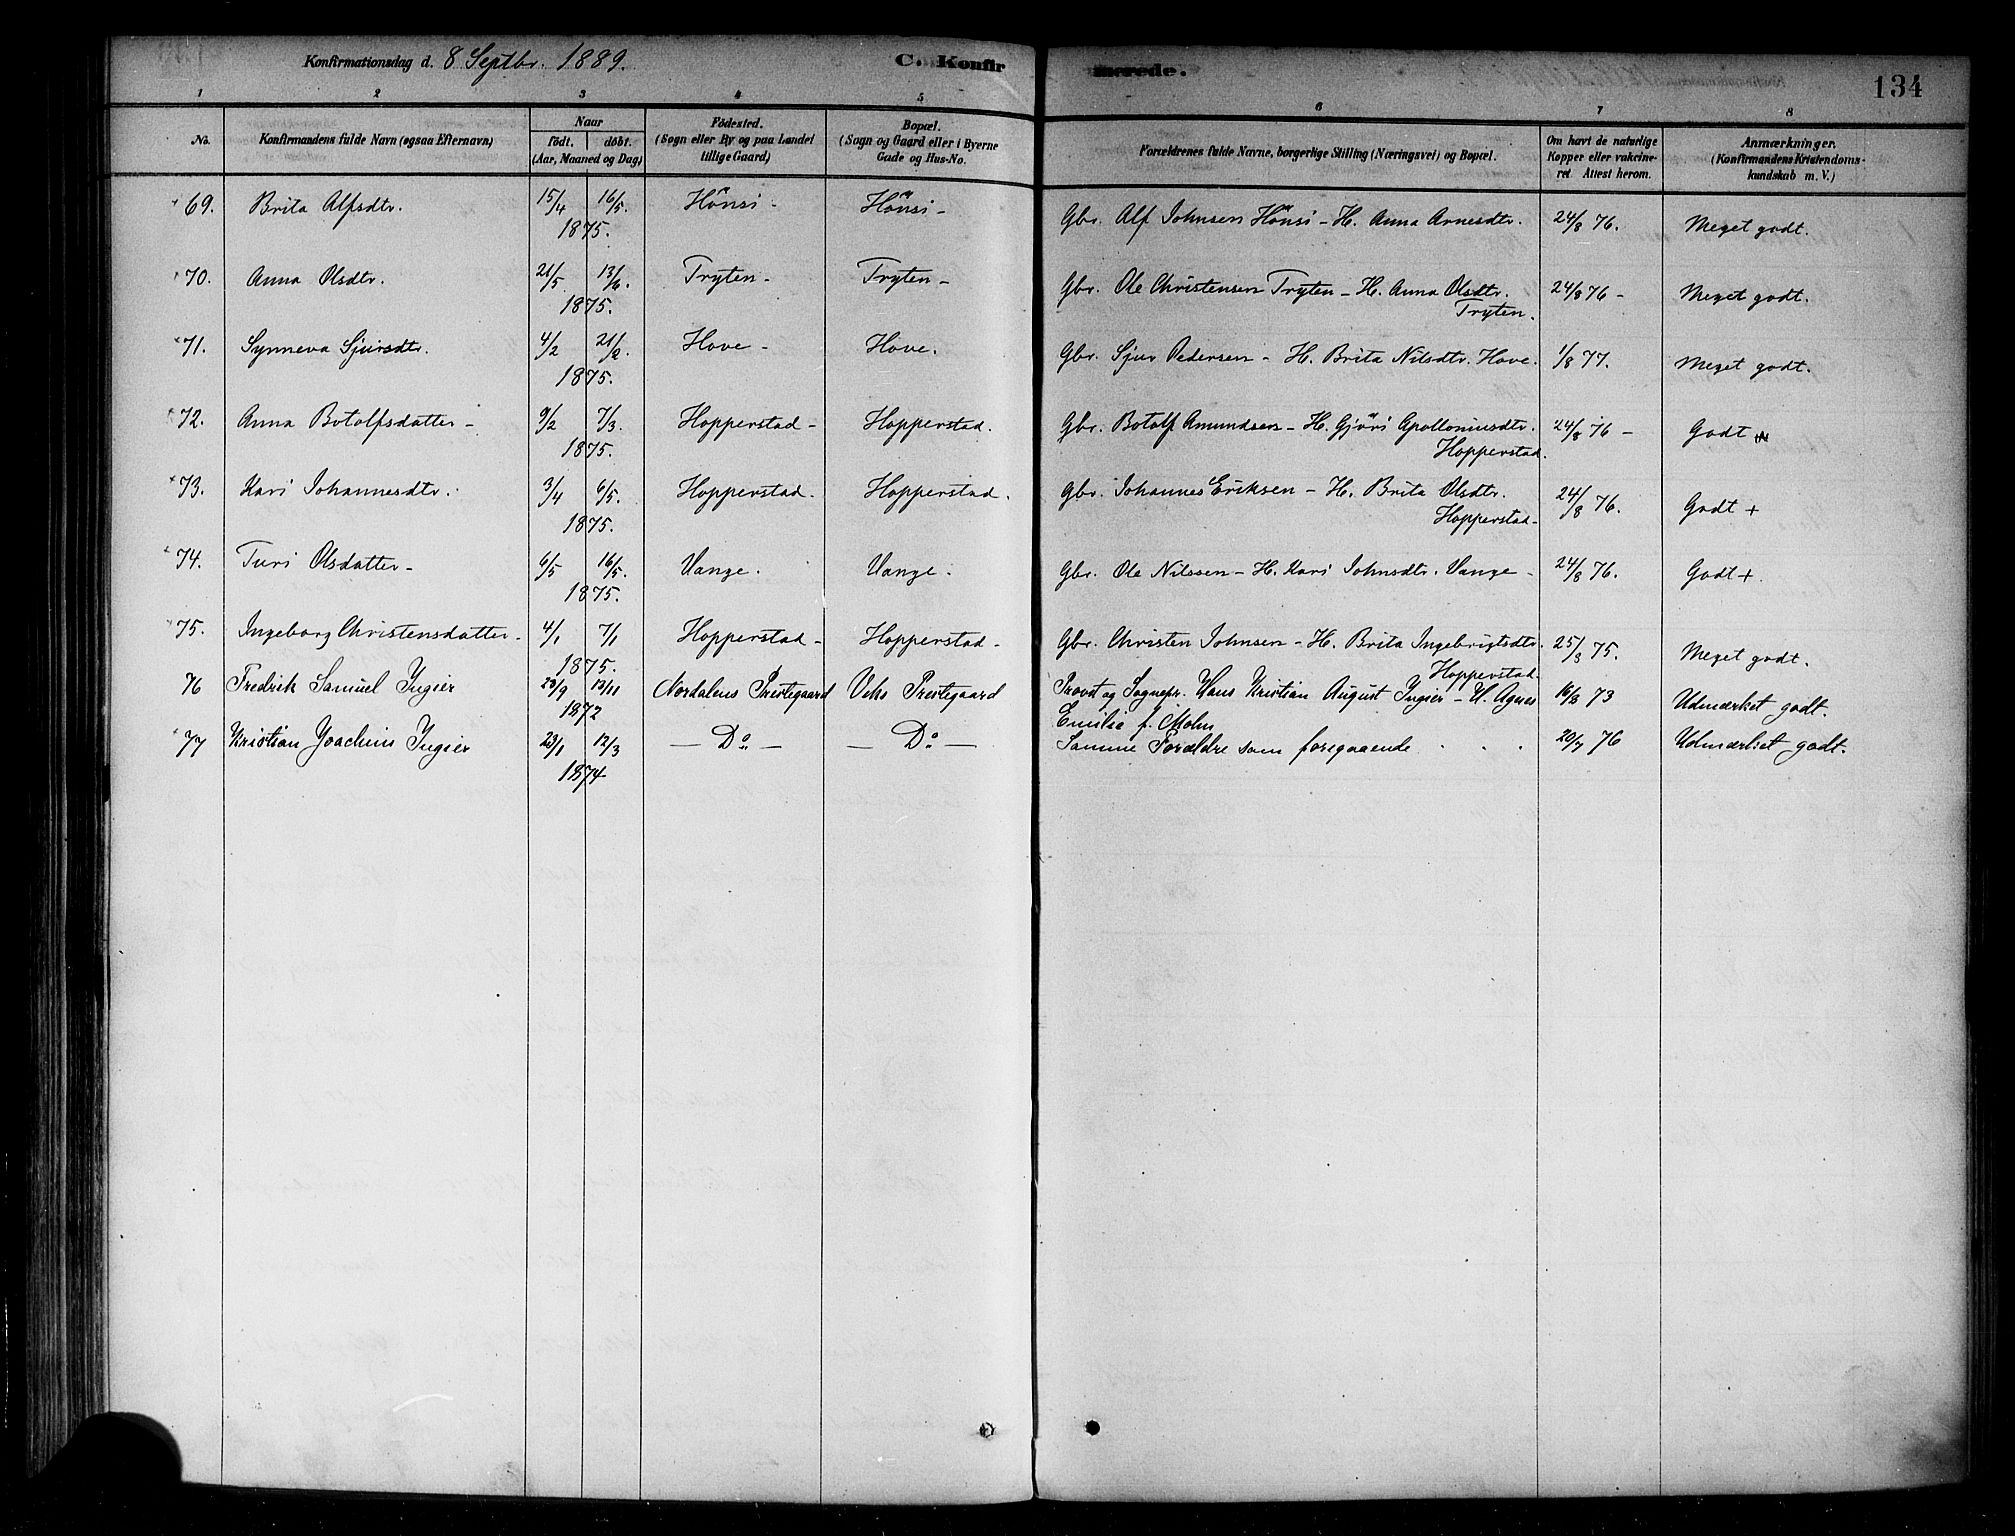 Konfirmationsdag d. 8 Septbr. 1889.
C. Konfir
merede.
134
1 2 3 4 5 6 7 8
No. Konfirmandens fulde Navn (ogsaa Efternavn) Naar født. døbt. (Aar, Maaned og Dag) Fødested. (Sogn eller By og paa Landet tillige Gaard) Bopæl. (Sogn og Gaard eller i Byerne Gade og Hus-No. Forældrenes fulde Navne, borgerlige Stilling (Næringsvei) og Bopæl. Om havt de naturlige Kopper eller vakcineret Attest herom. Anmærkninger. (Konfirmandens Kristendomskundskab m. V.)
69. Brita Alfsdtr. 15/4 16/5. Hönsi - Hönsi - Gbr. Alf Johnsen Hönsi - H. Anna Arnesdtr. 24/8 76. Meget godt.
1875.
70. Anna Olsdtr. 21/5 13/6. Tryten - Tryten - Gbr. Ole Christensen Tryten - H. Anna Olsdtr. 24/8 76 - Meget godt.
1875. Tryten.
71. Synneva Sjursdtr. 4/2 21/2. Hove - Hove. Gbr. Sjur Pedersen - H. Brita Nilsdtr. Hove. 1/8 77. Meget godt.
1875.
72. Anna Botolfsdatter - 9/2 7/3. Hopperstad - Hopperstad. Gbr. Botolf Amundsen - H. Gjöri Apolloniusdtr. 24/8 76 - Godt
1875. Hopperstad.
73. Kari Johannesdtr. 3/4 6/5. Hopperstad. Hopperstad. Gbr. Johannes Eriksen - H. Brita Olsdtr. 24/8 76. Godt +
1875. Hopperstad.
74. Turi Olsdatter - 6/5 16/5. Vange. Vange. Gbr. Ole Nilssen - H. Kari Johnsdtr. Vange - 24/8 76. Godt +.
1875.
75. Ingeborg Christensdatter. 4/1 7/1 Hopperstad - Hopperstad - Gbr. Christen Johnsen - H. Brita Ingebrigtsdtr. 25/8 75. Meget godt.
1875. Hopperstad.
76 Fredrik Samuel Ingier 23/9 13/11 Nordalens Prestegaard Viks Prestegaard Provst og Sognepr. Hans Kristian August Ingier - H. Agnes 16/8 73 Udmærket godt.
1872 Emilie f. Molm
77 Kristian Joachim Ingier 23/1 12/3 - Do - - Do - Samme Forældre som foregaaende . . . 20/7 76 Udmærket godt.
1874